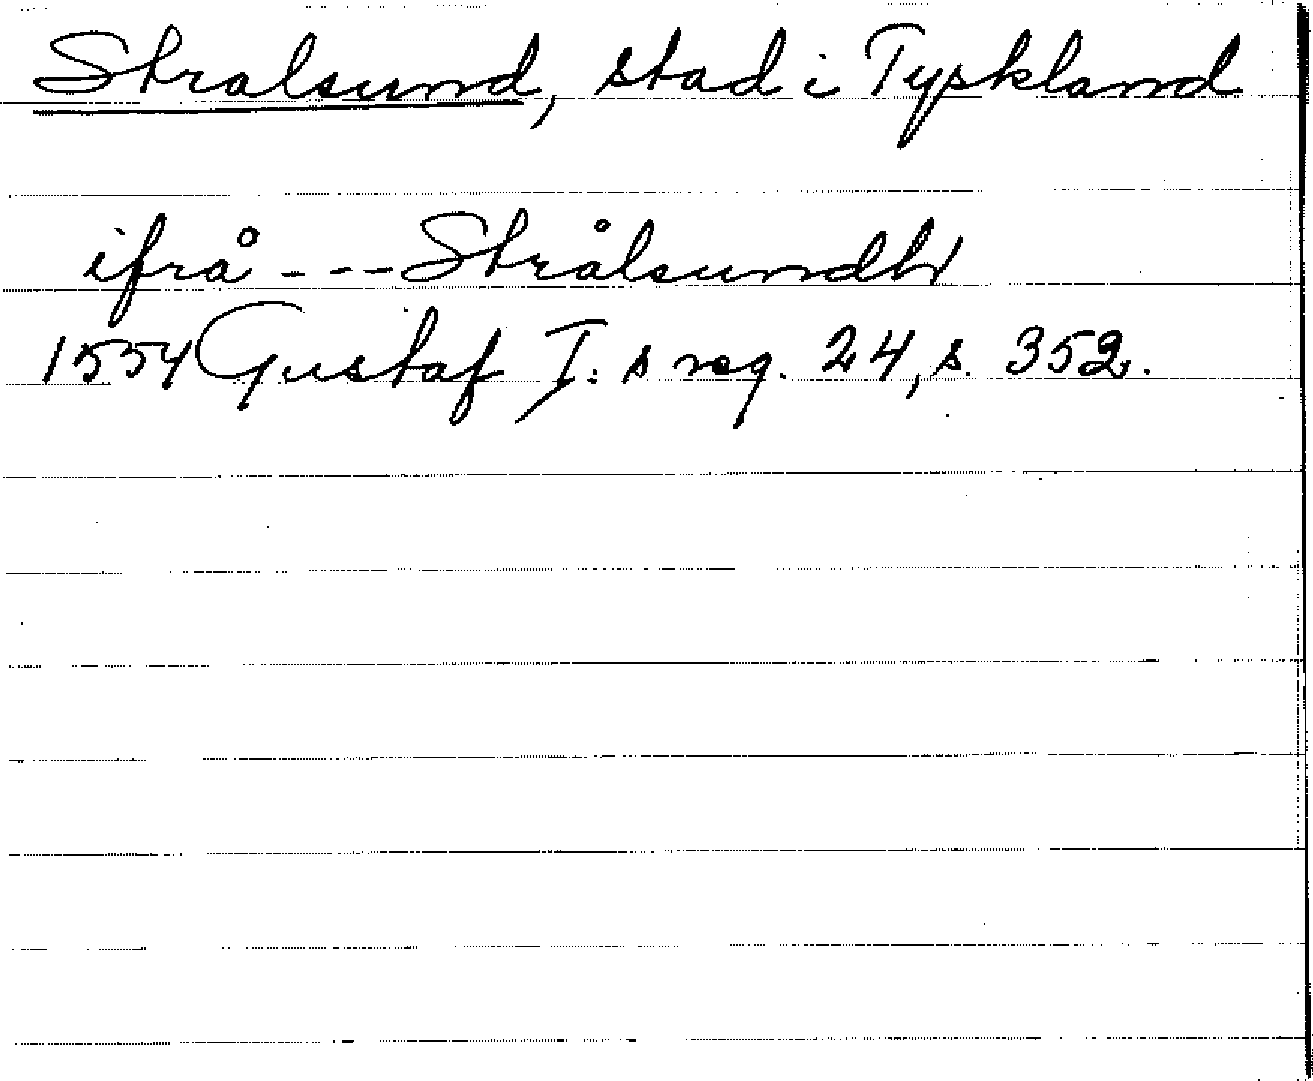 Stralsund, stad i Tyskland
ifrå --- Strålsundh
1554 Gustaf I:s reg. 24, s. 352.